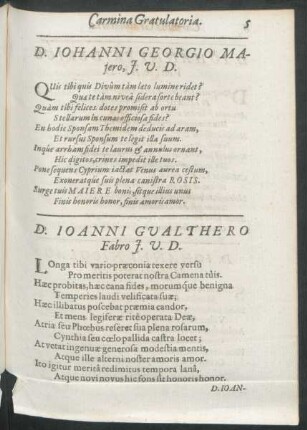 Carmina Gratulatoria. 5
D. IOHANNI GEORGIO MA-
jero, J. V. D.
QUis tibi quis Divûm tàm leto lumine ridet?
Quæ te tàm niveâ sidera sorte beant?
Quàm tibi felices dotes promisit ab ortu
Stellarum in cunas officiosa fides?
En hodie Sponsam Themidem deducis ad aram,
Et rursus Sponsum te legit illa suum.
Inque arrham fidei te laurus & annulus ornant,
Hic digitos, crines impedit ille tuos.
Pone sequens Cyprium jactat Venus aurea cestum,
Exoneratque suis plena canistra ROSIS.
Surge tuis MAIERE bonis, sitque illius unus
Finis honoris honor, finis amoris amor.
D. IOANNI GVALTHERO
Fabro J. V. D.
LOnga tibi vario præconia texere versu
Pro meritis poterat nostra Camena tuis.
Hæc probitas, hæc cana fides, morumque benigna
Temperies laudi velificata suæ;
Hæc illibatus poscebat præmia candor,
Et mens legiferæ ritè operata Deæ,
Atria seu Phœbus reseret sua plena rosarum,
Cynthia seu cœlo pallida castra locet;
At vetat ingenuæ generosa modestia mentis,
Atque ille alterni noster amoris amor.
Ito igitur meritâ redimitus tempora lanâ,
Atque novi novus hic sons sit honoris honor.
D. IOAN-